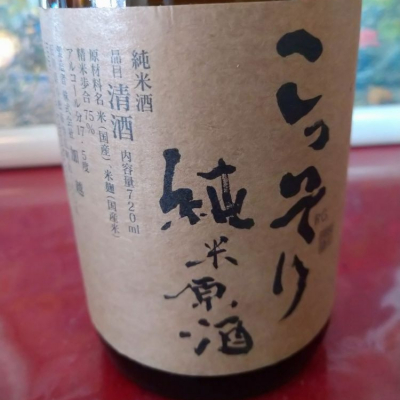 こっそり
純米原酒
純米酒
品目 清酒 内容量720ml
原材料名 米(国産)、米麹(国産米)
精米歩合 75%
アルコール分 17.5度